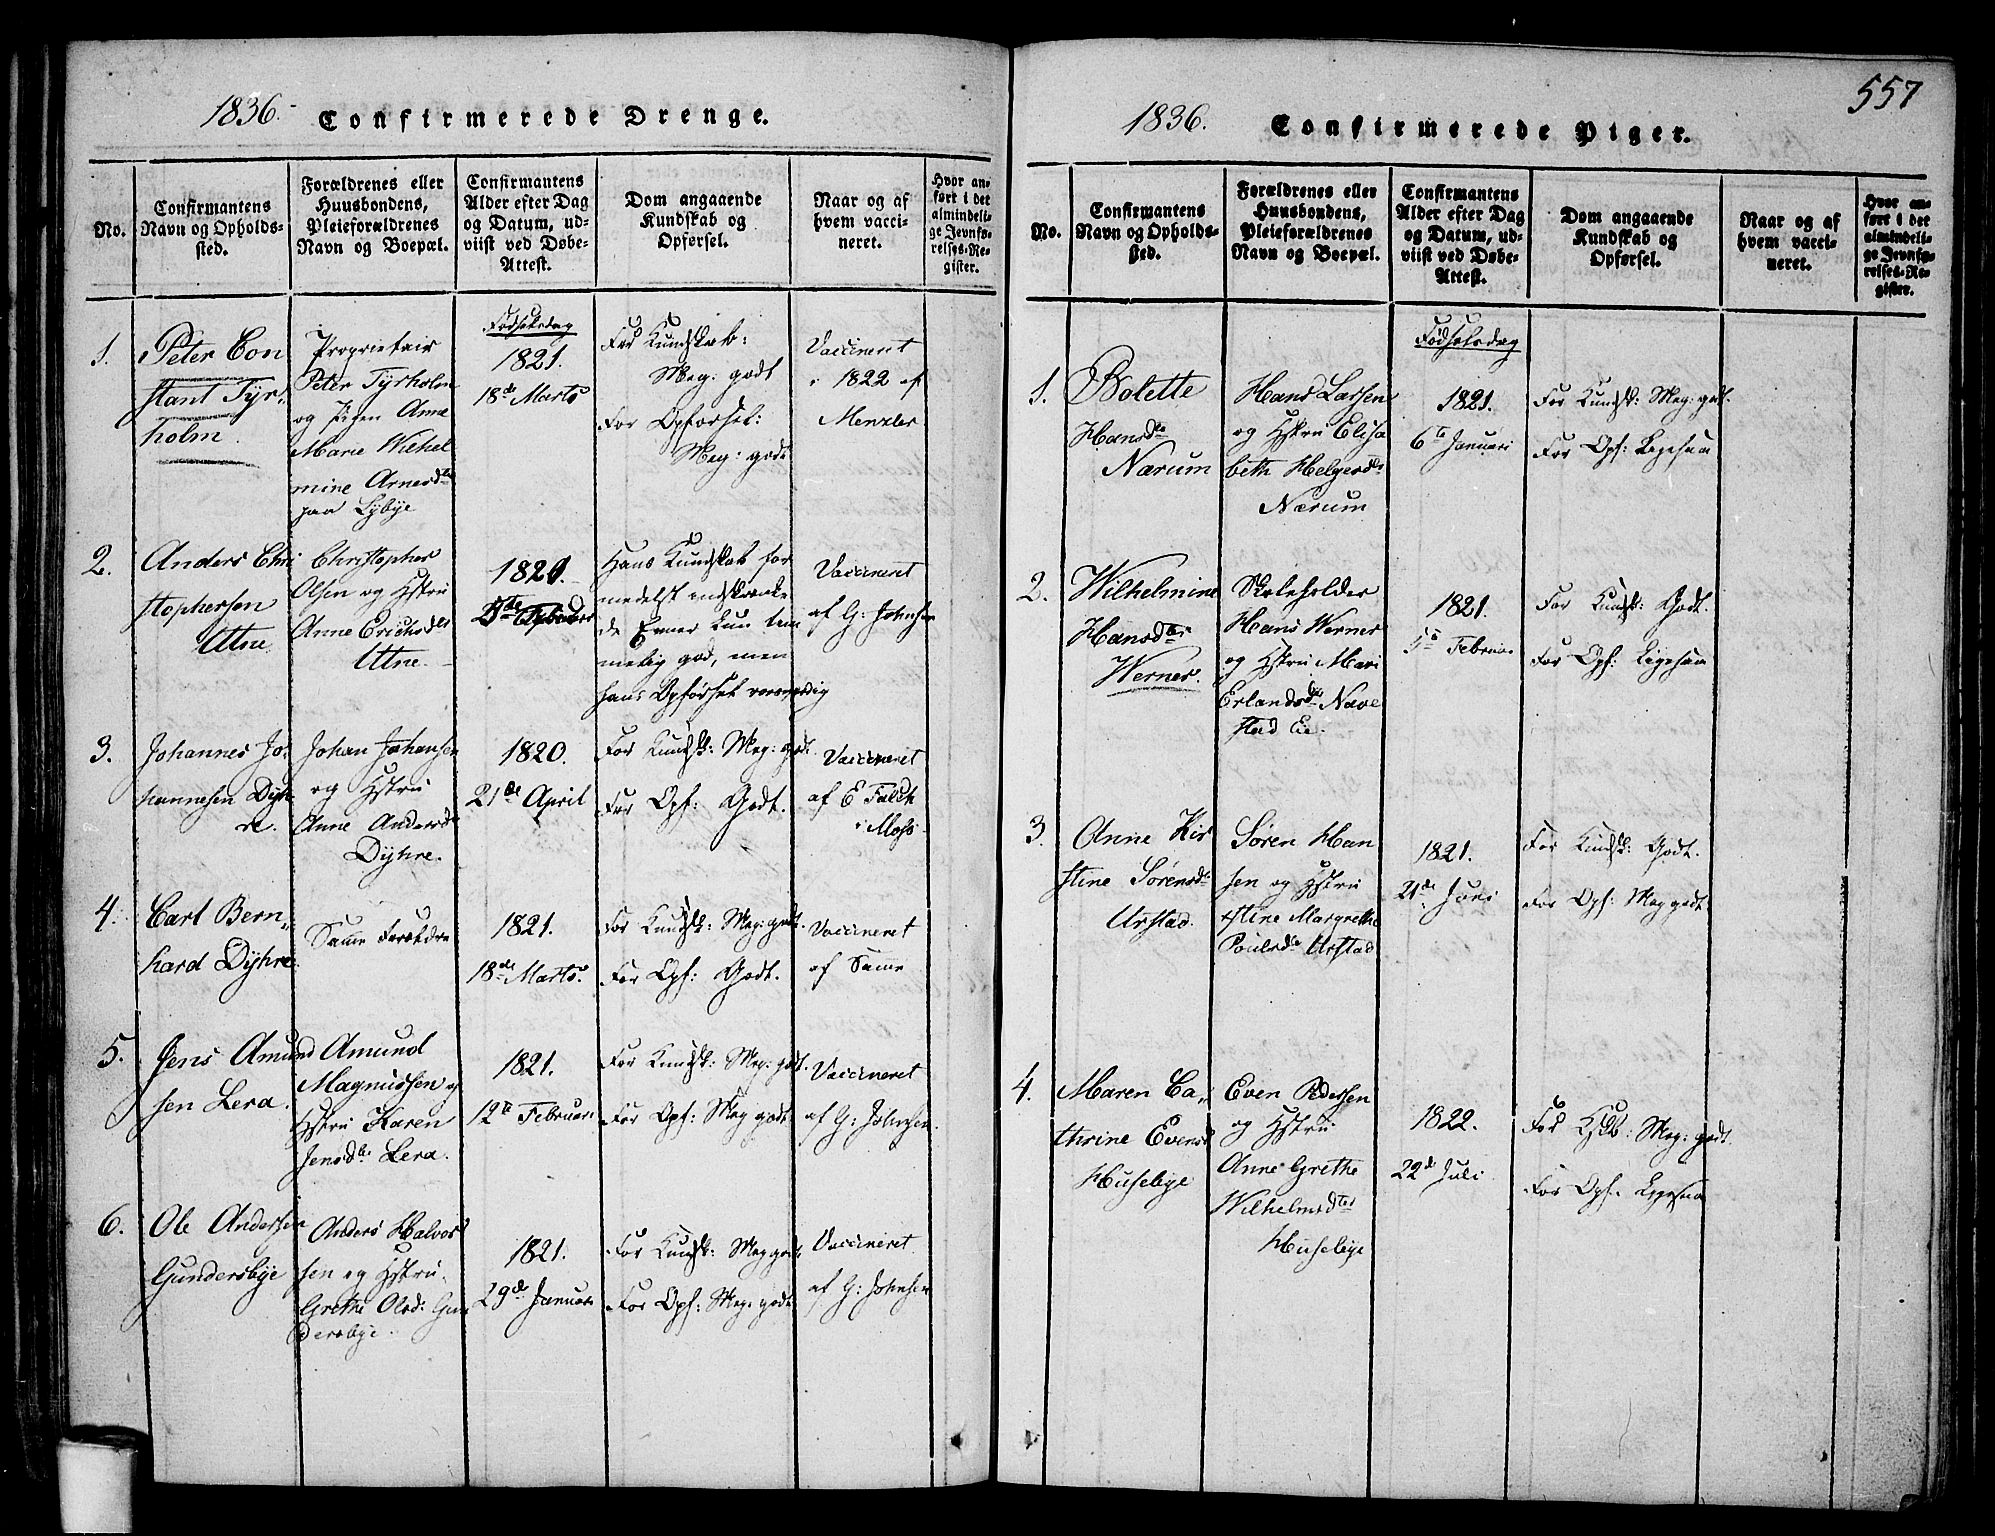 1836.
Confirmerede Drenge.
No.
Confirmantens
Navn og Opholds-
sted.
Forældrenes eller
Huusbondens,
Pleieforældrenes
Navn og Boepæl.
Confirmantens
Alder efter Dag
og Datum, ud-
viist ved Døbe-
Attest.
Dom angaaende
Kundskab og
Opførsel.
Naar og af
hvem vacci-
neret.
Hvor an-
ført i det
almindeli-
ge Jevnfø-
relses-Re-
gister.
1.
Peter Con
stant Tyr-
holm.
Proprietair
Peter Tyrholm
og Pigen Anne
Marie Wilhel
mine Arnesdtr
paa Lybye
Fødselsdag
1821.
18de Marts
For Kundskab:
Meg: godt
For Opførsel:
Meg: godt
Vaccineret
i 1822 af
Menzler
2.
Anders Chri
stophersen
Utne.
Christopher
Olsen og Hstru
Anne Erichsdtr
Utne.
1821.
Hans Kundskab for
medelst indskrænke
de Evner kun tem
melig god, men
hans Opførsel
Vaccineret
af G: Johnsen
3.
Johannes Jo-
hannesen Dyh
re.
Johan Johansen
og Hstru
Anne Andersdr
Dyhre.
1820.
21de April
For Kundsk: Meg: godt.
For Opf: Godt.
Vaccineret
af E Falch
i Moss
4.
Carl Bern„
hard Dyhre
Samme Forældre
1821.
18de Marts.
For Kundsk: Meg: godt.
For Opf: Godt.
Vaccineret
af Samme
5.
Jens Amund
sen Lera.
Amund
Magnussen og
Hstru Karen
Jensdtr Lera.
1821.
12te Februari
For Kundsk: Meg: godt.
For Opf: Meg godt
Vaccineret
af G: Johnsen.
6.
Ole Andersen
Gundersbye
Anders Halvor
sen og Hstru
Grethe Olsd: Gun
dersbye.
1821.
29de Januari
For Kundsk: Meg godt
For Opf: Meg: godt
Vaccineret
af G: Johnsen
557
1836.
Confirmerede Piger.
No.
Confirmantens
Navn og Opholds-
sted.
Forældrenes eller
Huusbondens,
Pleieforældrenes
Navn og Boepæl.
Confirmantens
Alder efter Dag
og Datum, ud-
viist ved Døbe-
Attest.
Dom angaaende
Kundskab og
Opførsel.
Naar og af
hvem vacci-
neret.
Hvor an-
ført i det
almindeli-
ge Jevnfø-
relses-Re-
gister.
1.
Bolette
Hansdtr
Nærum
Hans Larsen
og Hstru Elisa
beth Helgesdtr
Nærum
Fødselsdag
1821.
6te Januari
For Kundsk: Meg: godt.
For Opf: Ligesaa
2.
Wilhelmine
Hansdtr
Werner.
Skoleholder
Hans Werner
og Hstru Mari
Erlandsdtr Nave
stad Eie.
1821.
5te Februar
For Kundsk: Godt.
For Opf: Ligesaa
3.
Anne Kir
stine Sørensdtr
Urstad.
Søren Han
sen og Hstru
Stine Margrethe
Poulsdtr Urstad
1821.
21de Juni
For Kundsk: Godt.
For Opf: Meg godt
4.
Maren Ca„
thrine Evensd
Husebye
Even Pedersen
og Hstru
Anne Grethe
Wilhelmsdtr
Husebye
1822.
22de Juli
For Kskb: Meg: godt.
For Opf. Ligesaa